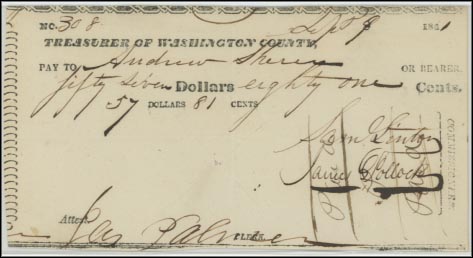 NO. 308 Sept 8 1841
TREASURER OF WASHINGTON COUNTY,
PAY TO Andrew OR BEARER
fifty seven Dollars eighty one Cents.
57 DOLLARS 81 CENTS
Linton
James Pollock
COMMISSIONERS
Attest,
Palmer CLERK.